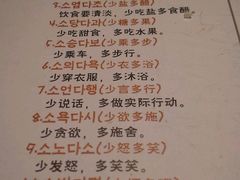 3.소염다초(少盐多醋)
饮食要清淡，少吃盐多食醋。
4.소당다과(少糖多果)
少吃甜食，多吃水果。
5.소승다보(少乘多步)
少乘车，多步行。
6.소의다욕(少衣多浴)
少穿衣服，多沐浴。
7.소언다행(少言多行)
少说话，多做实际行动。
8.소욕다시(少欲多施)
少贪欲，多施舍。
9.소노다소(少怒多笑)
少发怒，多笑笑。